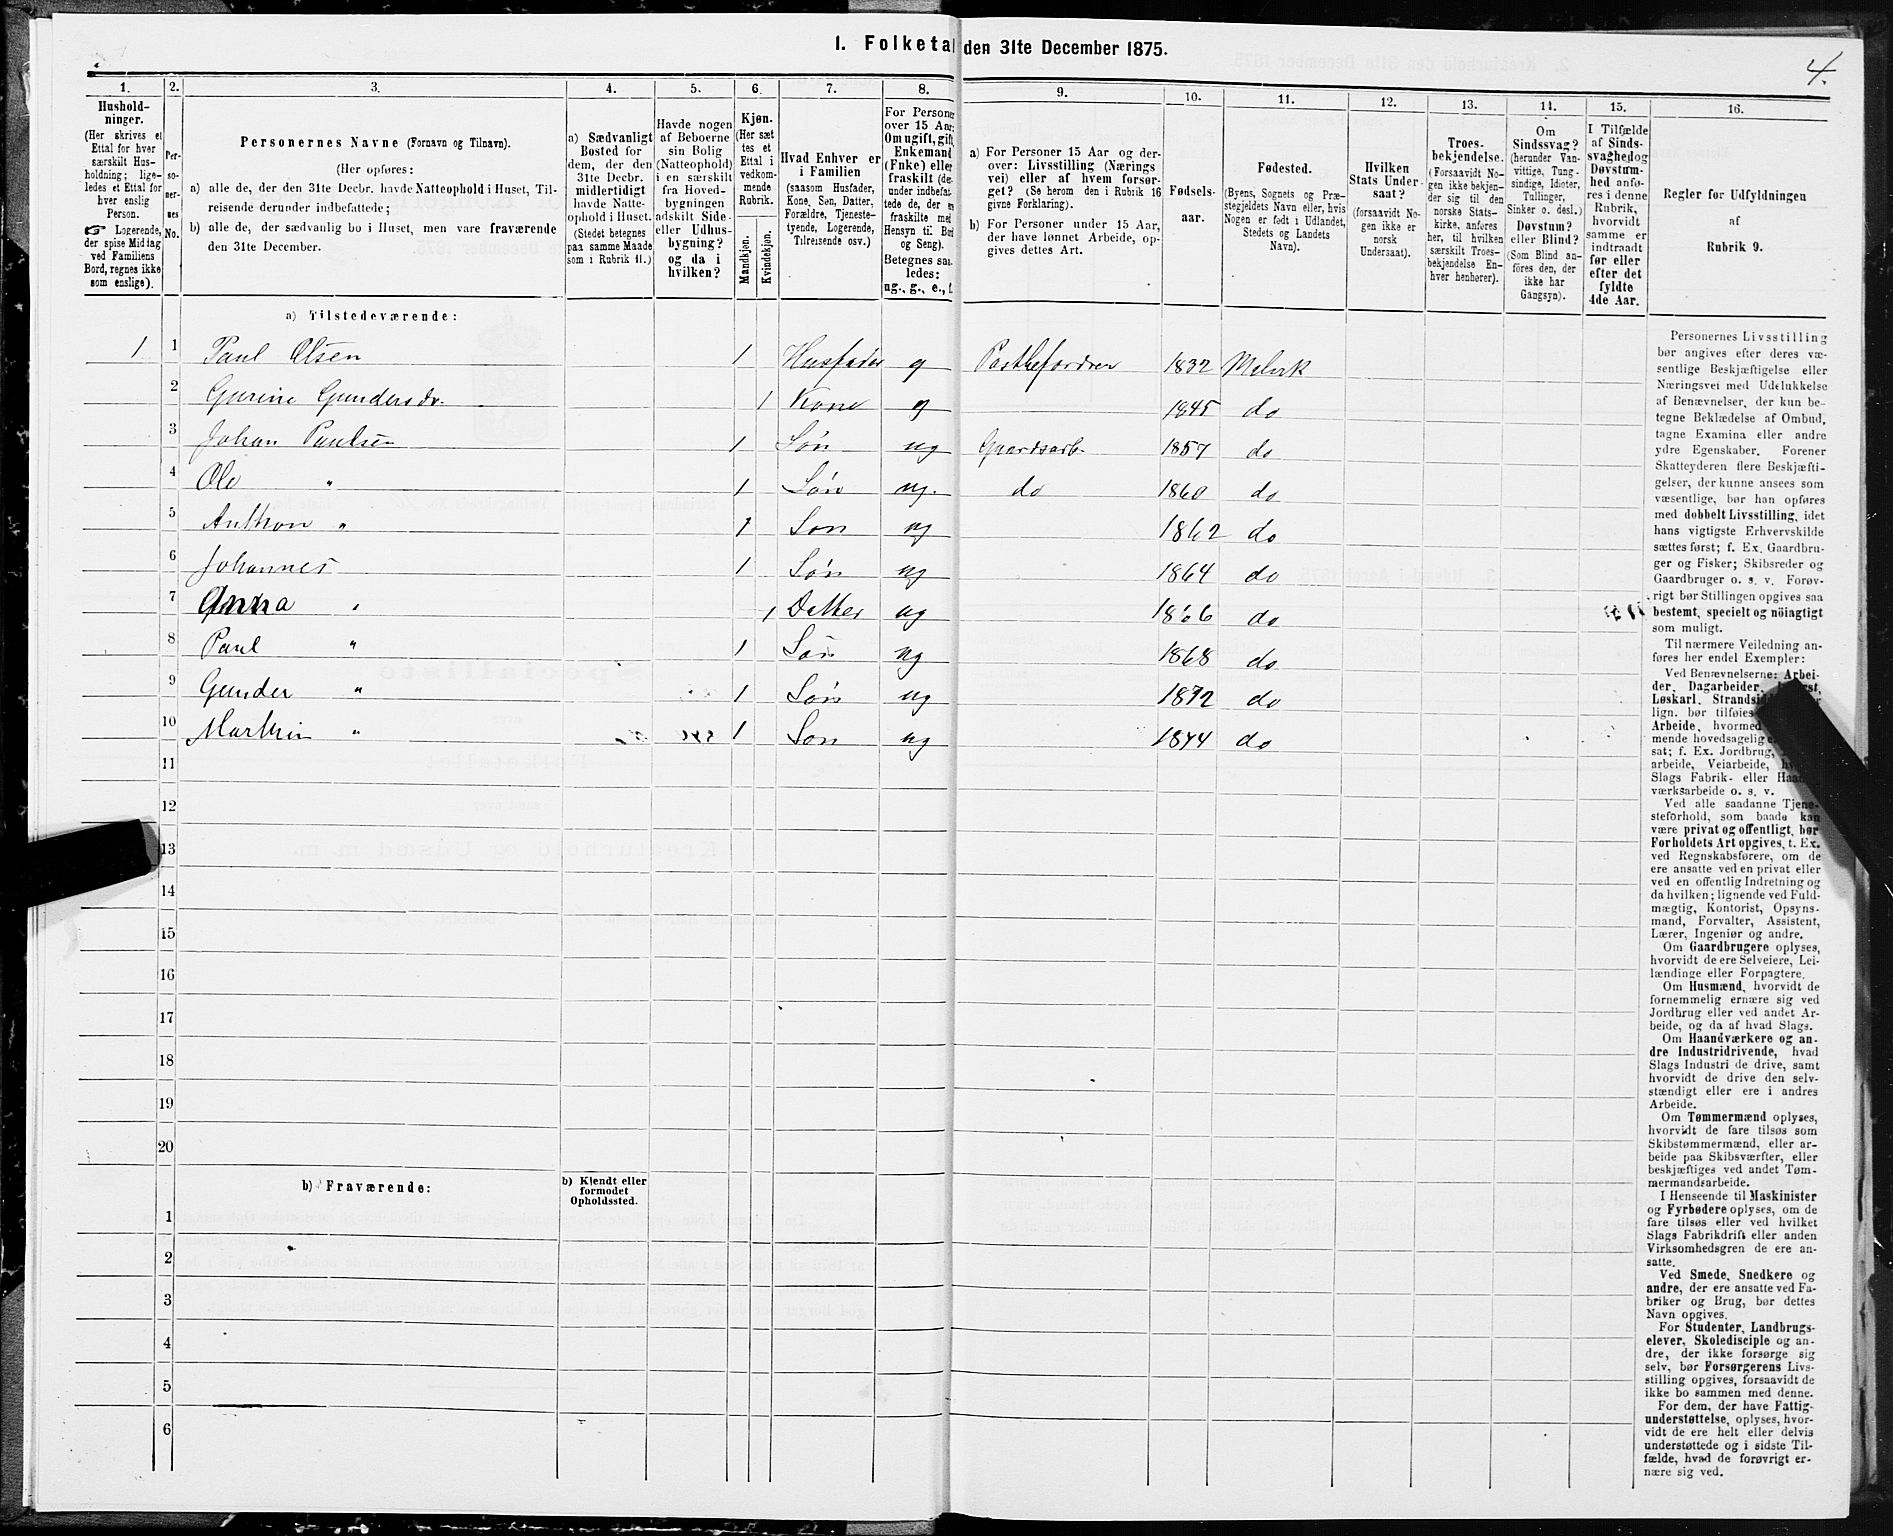 I. Folketal den 31te December 1875.
4.
1. 2. 3. 4. 5. 6. 7. 8. 9. 10. 11. 12. 13. 14. 15. 16.
Hushold-
ninger.
(Her skrives et
Ettal for hver
særskilt Hus-
holdning; lige-
ledes et Ettal for
hver enslig
Person.
☞ Logerende,
der spise Middag
ved Familiens
Bord, regnes ikke
som enslige).
Per-
so-
ner-
nes
No.
Personernes Navne (Fornavn og Tilnavn).
(Her opføres:
a) alle de, der den 31te Decbr. havde Natteophold i Huset, Til-
reisende derunder indbefattede;
b) alle de, der sædvanlig bo i Huset, men vare fraværende
den 31te December.
a) Sædvanligt
Bosted for
dem, der den
31te Decbr.
midlertidigt
havde Natte-
ophold i Huset.
(Stedet betegnes
paa samme Maade
som i Rubrik 11.)
Havde nogen
af Beboerne
sin Bolig
(Natteophold)
i en særskilt
fra Hoved-
bygningen
adskilt Side-
eller Udhus-
bygning?
og da i
hvilken?
Kjøn.
(Her sæt
tes et
Ettal i
vedkom-
mende
Rubrik.
Mandkjøn.
Kvindekjøn.
Hvad Enhver er
i Familien
(saasom Husfader,
Kone, Søn, Datter,
Forældre, Tjeneste-
tyende, Logerende,
Tilreisende osv.)
For Personer
over 15 Aar:
Om ugift, gift,
Enkemand
(Enke) eller
fraskilt (der-
under indbefat-
tede de, der er
fraskilte med
Hensyn til Bord
og Seng).
Betegnes saa-
ledes:
ug., g., e., f.
a) For Personer 15 Aar og der-
over: Livsstilling (Nærings
vei) eller af hvem forsør-
get? (Se herom den i Rubrik 16
givne Forklaring).
b) For Personer under 15 Aar,
der have lønnet Arbeide, op-
gives dettes Art.
Fødsels-
aar.
Fødested.
(Byens, Sognets og Præ-
stegjeldets Navn eller, hvis
Nogen er født i Udlandet,
Stedets og Landets
Navn).
Hvilken
Stats Under-
saat?
(forsaavidt No-
gen ikke er
norsk
Undersaat).
Troes-
bekjendelse.
(Forsaavidt No-
gen ikke bekjen-
der sig til den
norske Stats-
kirke, anføres
her, til hvilken
særskilt Troes-
bekjendelse En-
hver henhører).
Om
Sindssvag?
(herunder Van-
vittige, Tung-
sindige, Idioter,
Tullinger,
Sinker o. desl.)
Døvstum?
eller Blind?
(Som Blind an-
føres den, der
ikke har
Gangsyn).
I Tilfælde
af Sinds-
svaghed og
Døvstum-
hed anfø-
res i denne
Rubrik,
hvorvidt
samme er
indtraadt
før eller
efter det
fyldte
4de Aar.
Regler for Udfyldningen
af
Rubrik 9.
a) Tilstedeværende:
1 1 Paul Olsen 1 Husfader g Postbefordrer 1832 Malvik
2 Gurine Gundersdr. 1 Kone g 1845 do
3 Johan Paulsen 1 Søn ug Gaardsarb. 1857 do
4 Ole " 1 Søn ug. do 1860 do
5 Anthon " 1 Søn ug 1862 do
6 Johannes 1 Søn ug 1864 do
7 Anna " 1 Datter ug 1866 do
8 Paul " 1 Søn ug 1868 do
9 Gunder " 1 Søn ug 1872 do
10 Marthin " 1 Søn ug 1874 do
11
12
13
14
15
16
17
18
19
20
b) Fraværende:
b) Kjendt eller
formodet
Opholdssted.
1
2
3
4
5
6
Personernes Livsstilling
bør angives efter deres væ-
sentlige Beskjæftigelse eller
Næringsvei med Udelukkelse
af Benævnelser, der kun be-
tegne Beklædelse af Ombud,
tagne Examina eller andre
ydre Egenskaber. Forener
Skatteyderen flere Beskjæfti-
gelser, der kunne ansees som
væsentlige, bør han opføres
med dobbelt Livsstilling, idet
hans vigtigste Erhvervskilde
sættes først; f. Ex. Gaardbru-
ger og Fisker; Skibsreder og
Gaardbruger o. s. v. Forøv-
rigt bør Stillingen opgives saa
bestemt, specielt og nöiagtigt
som muligt.
Til nærmere Veiledning an-
føres her endel Exempler:
Ved Benævnelserne: Arbei-
der, Dagarbeider,
Løskarl, Strandsid
lign. bør tilføies
Arbeide, hvormed
mende hovedsagelig
sat; f. Ex. Jordbrug,
arbeide, Veiarbeide,
Slags Fabrik- eller
værksarbeide o. s. v.
Ved alle saadanne Tjene-
steforhold, som baade kan
være privat og offentligt, bør
Forholdets Art opgives, t. Ex.
ved Regnskabsførere, om de
ere ansatte ved en privat eller
ved en offentlig Indretning og
da hvilken; lignende ved Fuld-
mægtig, Kontorist, Opsyns-
mand, Forvalter, Assistent,
Lærer, Ingeniør og andre.
Om Gaardbrugere oplyses,
hvorvidt de ere Selveiere, Lei-
lændinge eller Forpagtere.
Om Husmænd, hvorvidt de
fornemmelig ernære sig ved
Jordbrug eller ved andet Ar-
beide, og da af hvad Slags.
Om Haandværkere og an-
dre Industridrivende, hvad
Slags Industri de drive, samt
hvorvidt de drive den selv-
stændigt eller ere i andres
Arbeide.
Om Tømmermænd oplyses,
hvorvidt de fare tilsøs som
Skibstømmermænd, eller ar-
beide paa Skibsværfter, eller
beskjæftiges ved andet Tøm-
mermandsarbeide.
I Henseende til Maskinister
og Fyrbødere oplyses, om de
fare tilsøs eller ved hvilket
Slags Fabrikdrift eller anden
Virksomhedsgren de ere an-
satte.
Ved Smede, Snedkere og
andre, der ere ansatte ved Fa-
briker og Brug, bør dettes
Navn opgives.
For Studenter, Landbrugs-
elever, Skoledisciple og an-
dre, der ikke forsørge sig
selv, bør Forsørgerens Livs-
stilling opgives, forsaavidt de
ikke bo sammen med denne.
For dem, der have Fattig-
understøttelse, oplyses, hvor-
vidt de ere helt eller delvis
understøttede og i sidste Til-
fælde, hvad de forøvrigt er-
nære sig ved.